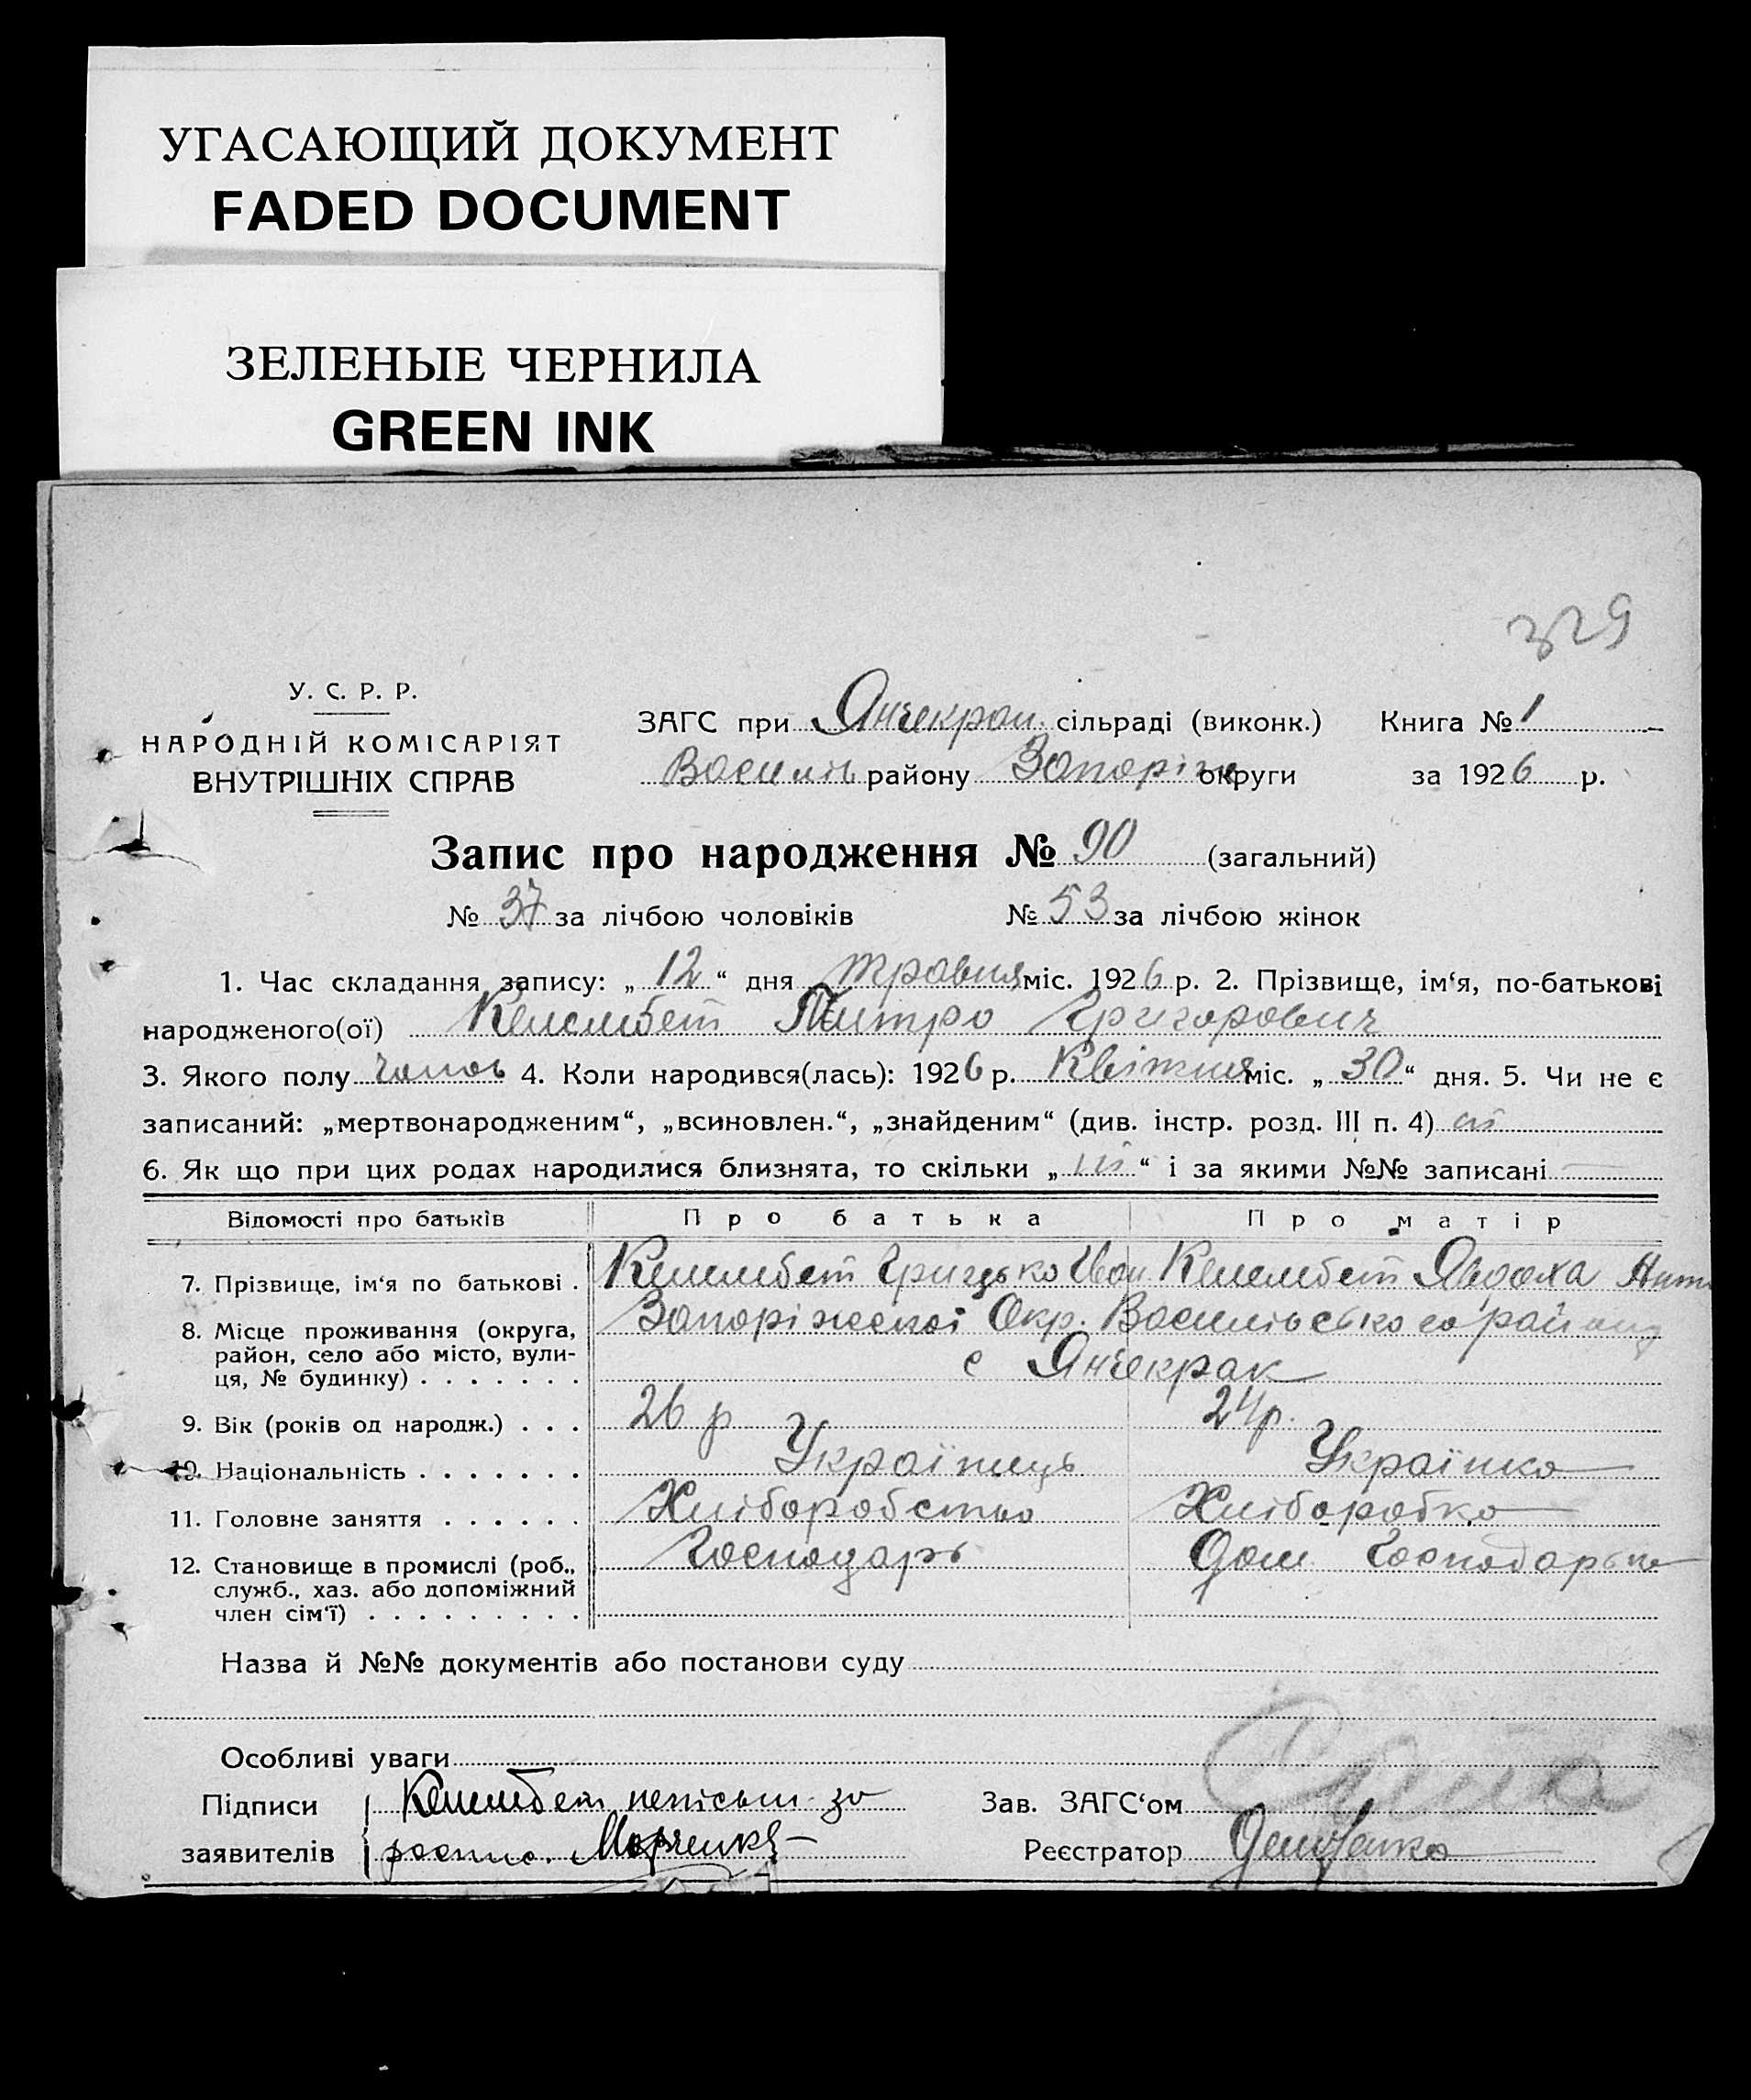 УГАСАЮЩИЙ ДОКУМЕНТ
FADED DOCUMENT
ЗЕЛЕНЫЕ ЧЕРНИЛА
GREEN INK
329
У. С. Р. Р.
НАРОДНІЙ КОМІСАРІЯТ
ВНУТРІШНІХ СПРАВ
ЗАГС при Янчекрак. сільраді (виконк.) Книга № 1
Василів району Запоріж округи за 1926 р.
Запис про народження № 90 (загальний)
№ 37 за лічбою чоловіків № 53 за лічбою жінок
1. Час складання запису: „ 12 “ дня травня міс. 1926 р. 2. Прізвище, ім‘я, по-батькові
народженого(ої) Келембет Григорович
3. Якого полу чолов 4. Коли народився(лась): 1926 р. Квітня міс. „ 30 “ дня. 5. Чи не є
записаний: „мертвонародженим“, „всиновлен.“, „знайденим“ (див. інстр. розд. III п. 4) ні
6. Як що при цих родах народилися близнята, то скільки „ ні “ і за якими №№ записані
Відомості про батьків Про батька Про матір
7. Прізвище, ім‘я по батькові . Келембет Грицько Іван Келембет Явдоха Анто
8. Місце проживання (округа, район, село або місто, вулиця, № будинку) . . . . . . . Запоріжської Окр. Василівського району
с Янчекрак
9. Вік (років од народж.) . . . 26 р 24 р.
10. Національність . . . . . . . Українець Українка
11. Головне заняття . . . . . . Хліборобство Хліборобка
12. Становище в промислі (роб., служб., хаз. або допоміжний член сім‘ї) . . . . . . . . . Господарь Дом Господарька
Назва й №№ документів або постанови суду
Особливі уваги
Підписи Келембет непісьм за Зав. ЗАГС‘ом
заявителів роспис. Марченко Реєстратор